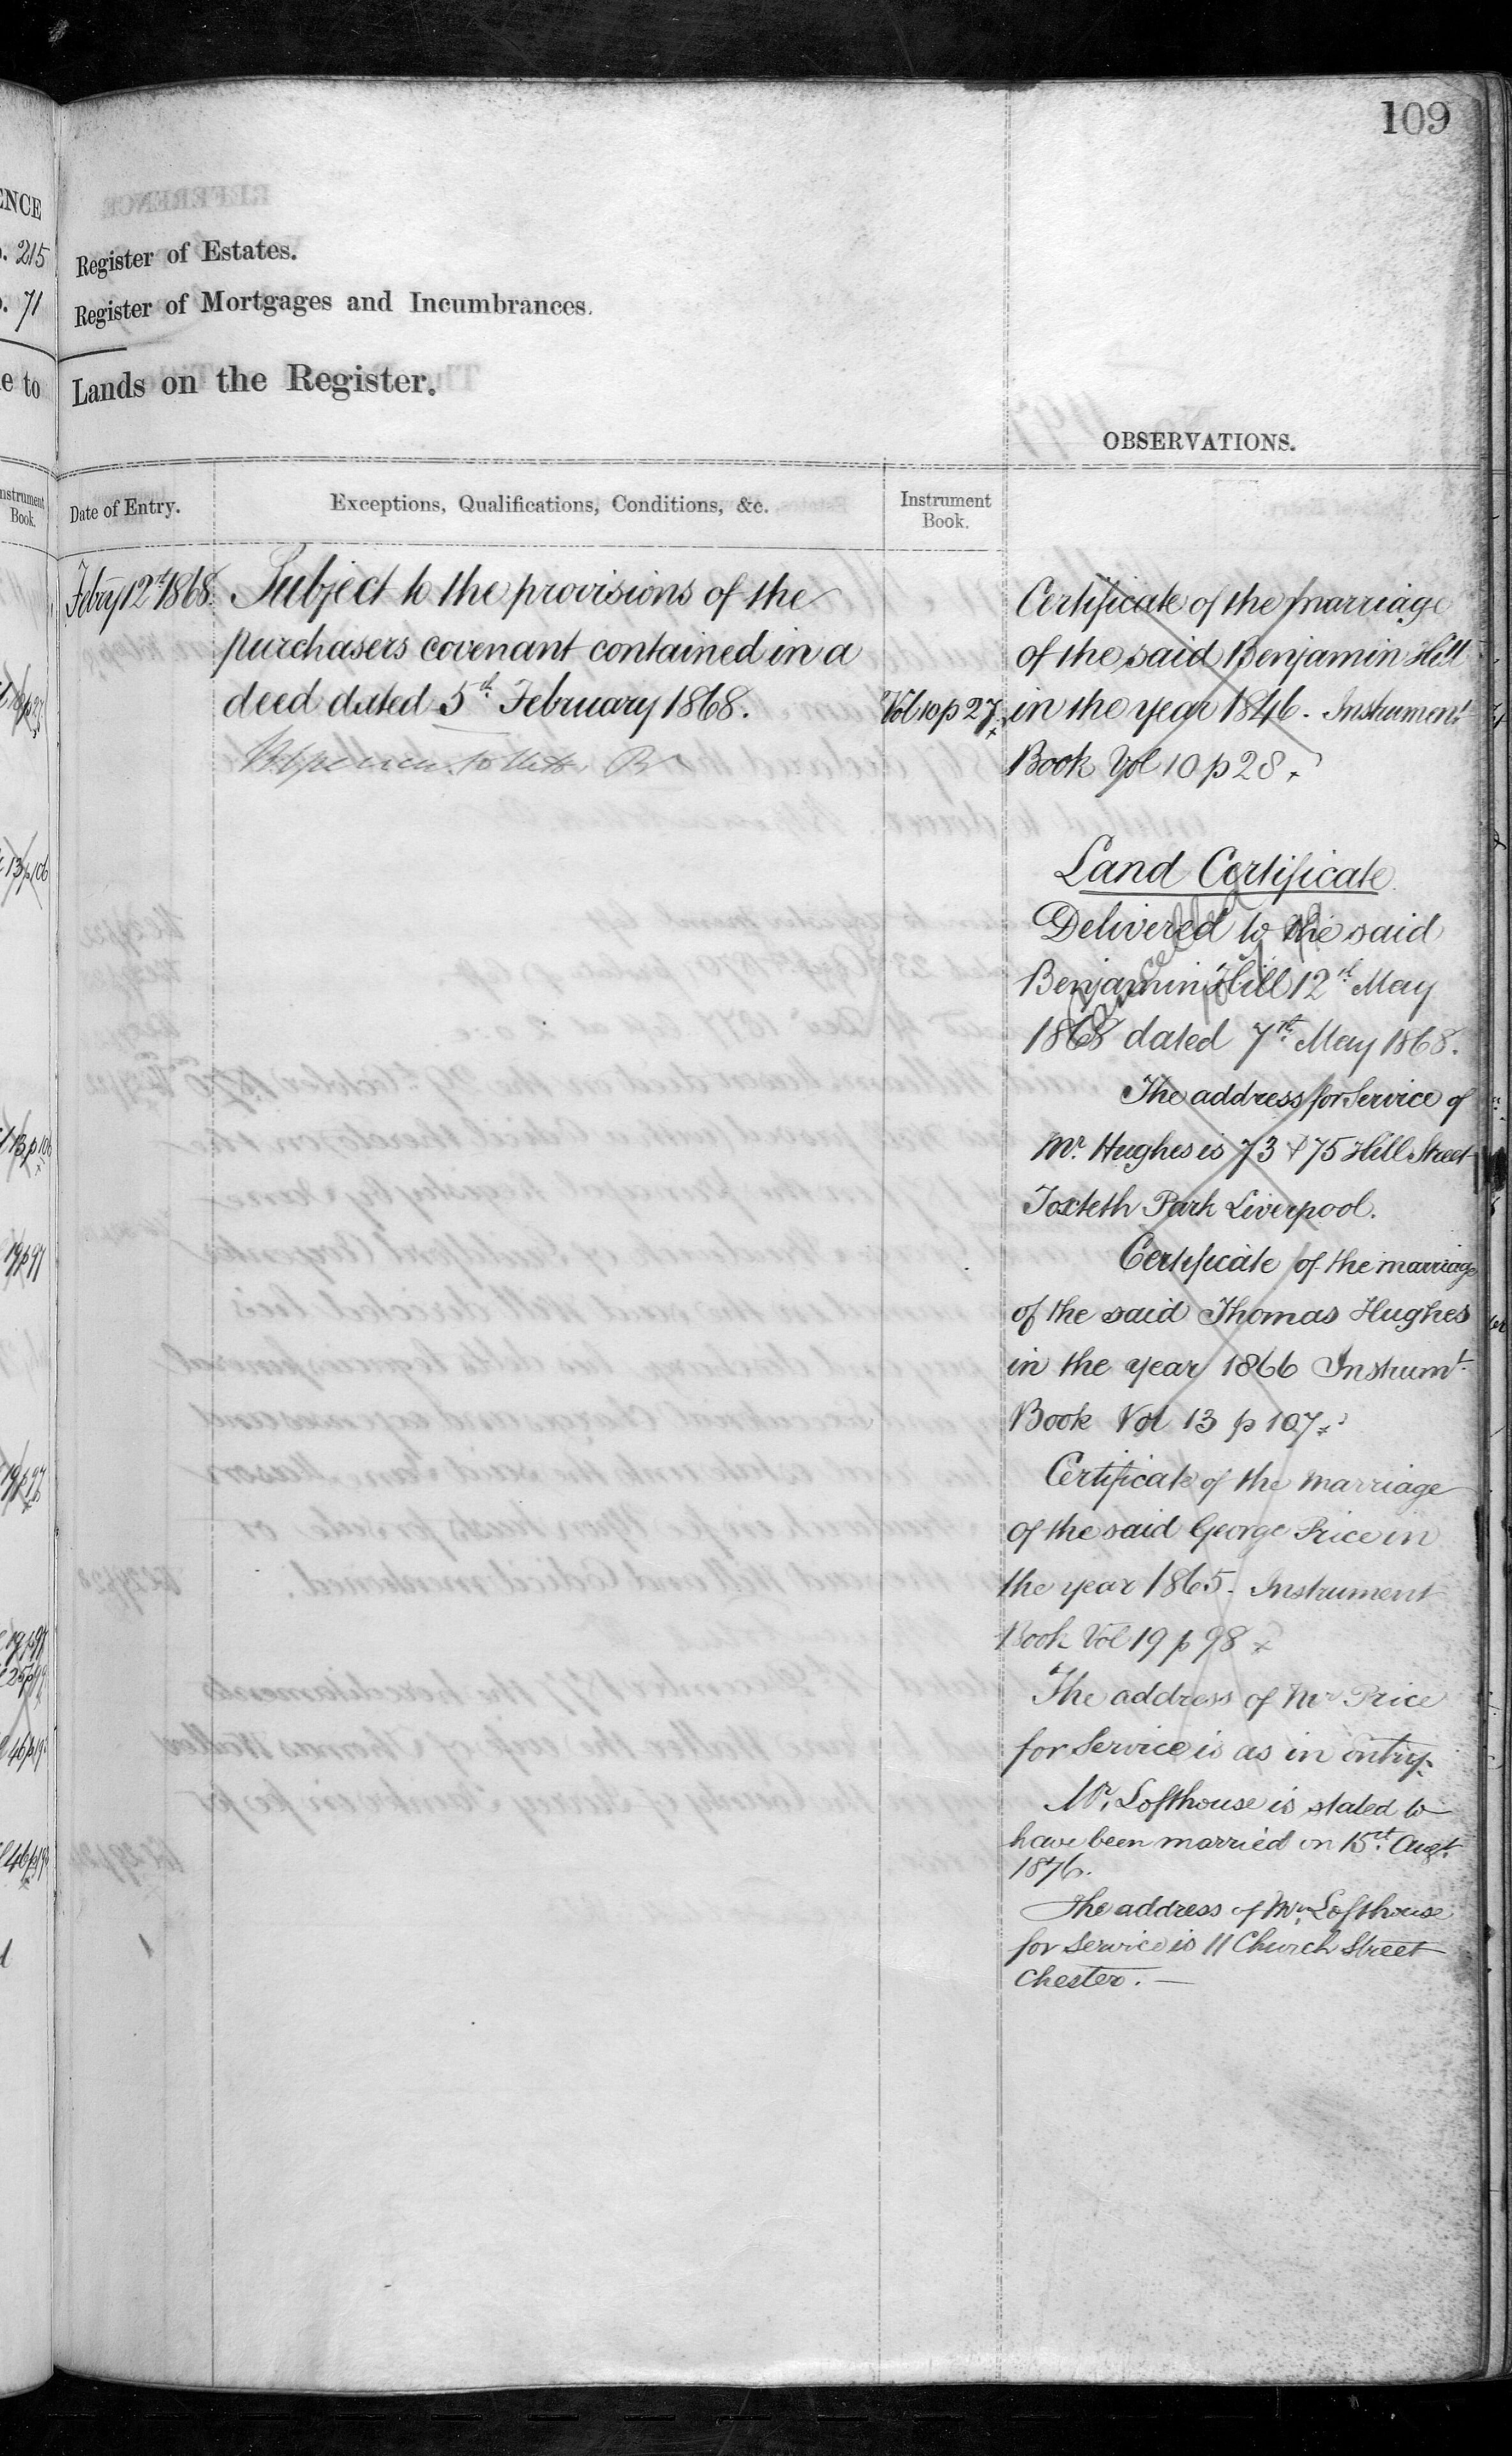 109
ENCE
. 215
. 71
e to
Instrument
Book.
Register of Estates.
Register of Mortgages and Incumbrances.
Lands on the Register.
OBSERVATIONS.
Date of Entry.
Exceptions, Qualifications, Conditions, &c.
Instrument
Book.
Febry 12th 1868.
Subject to the provisions of the
purchasers covenant contained in a
deed dated 5th February 1868.
Vol 10 p 27
Certificate of the marriage
of the said Benjamin Hill
in the year 1846. Instrument
Book Vol 10 p 28
Land Certificate
Delivered to the said
Benjamin Hill 12th May
1868 dated 7th May 1868.
The address for Service of
Mr. Hughes is 73 & 75 Hill Street
Toxteth Park Liverpool.
Certificate of the marriage
of the said Thomas Hughes
in the year 1866 Instrumt.
Book Vol 13 p 107
Certificate of the marriage
of the said George Price in
the year 1865. Instrument
Book Vol 19 p 98
The address of Mr Price
for Service is as in entry.
Mr. Lofthouse is stated to
have been married on 15th Augt.
1876.
The address of Mr. Lofthouse
for service is 11 Church Street
Chester. —